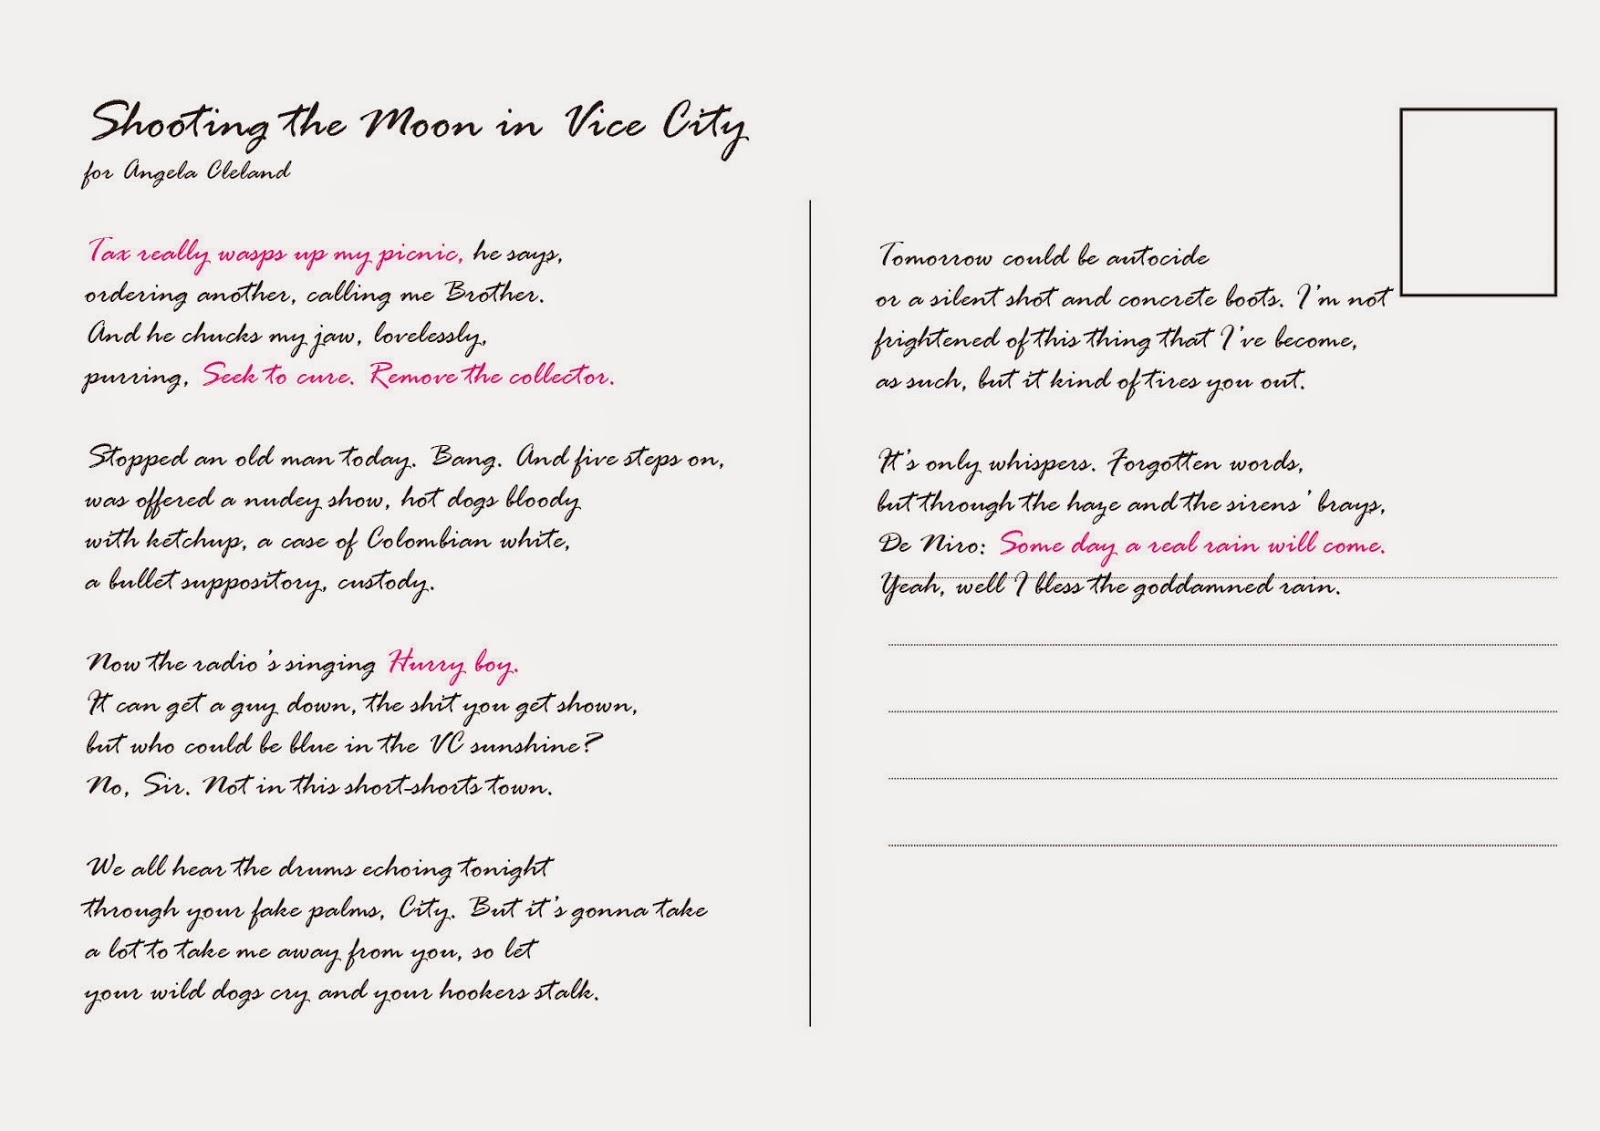 Shooting the Moon in Vice City
for Angela Cleland
Tax really wasps up my picnic, he says,
ordering another, calling me Brother.
And he chucks my jaw, lovelessly,
purring, Seek to cure. Remove the collector.
Stopped an old man today. Bang. And five steps on,
was offered a nudey show, hot dogs bloody
with ketchup, a case of Colombian white,
a bullet suppository, custody.
Now the radio's singing Hurry boy.
It can get a guy down, the shit you get shown,
but who could be blue in the VC sunshine?
No, Sir. Not in this short-shorts town.
We all hear the drums echoing tonight
through your fake palms, City. But it's gonna take
a lot to take me away from you, so let
your wild dogs cry and your hookers stalk.
Tomorrow could be autocide
or a silent shot and concrete boots. I'm not
frightened of this thing that I've become,
as such, but it kind of tires you out.
It's only whispers. Forgotten words,
but through the haze and the sirens' brays,
De Niro: Some day a real rain will come.
Yeah, well I bless the goddamned rain.